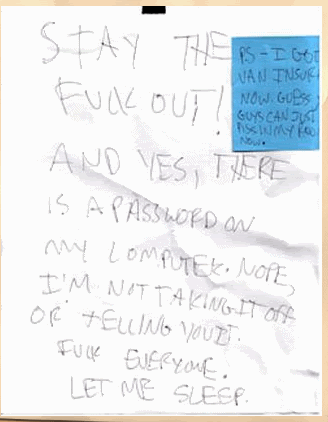 STAY THE
FUCK OUT!
AND YES, THERE
IS A PASSWORD ON
MY COMPUTER. NOPE,
I'M NOT TAKING IT OFF
OR TELLING YOU IT.
FUCK EVERYONE.
LET ME SLEEP.
PS - I GOT
VAN INSUR
NOW. GUESS
GUYS CAN JUST
PISS IN MY
NOW.